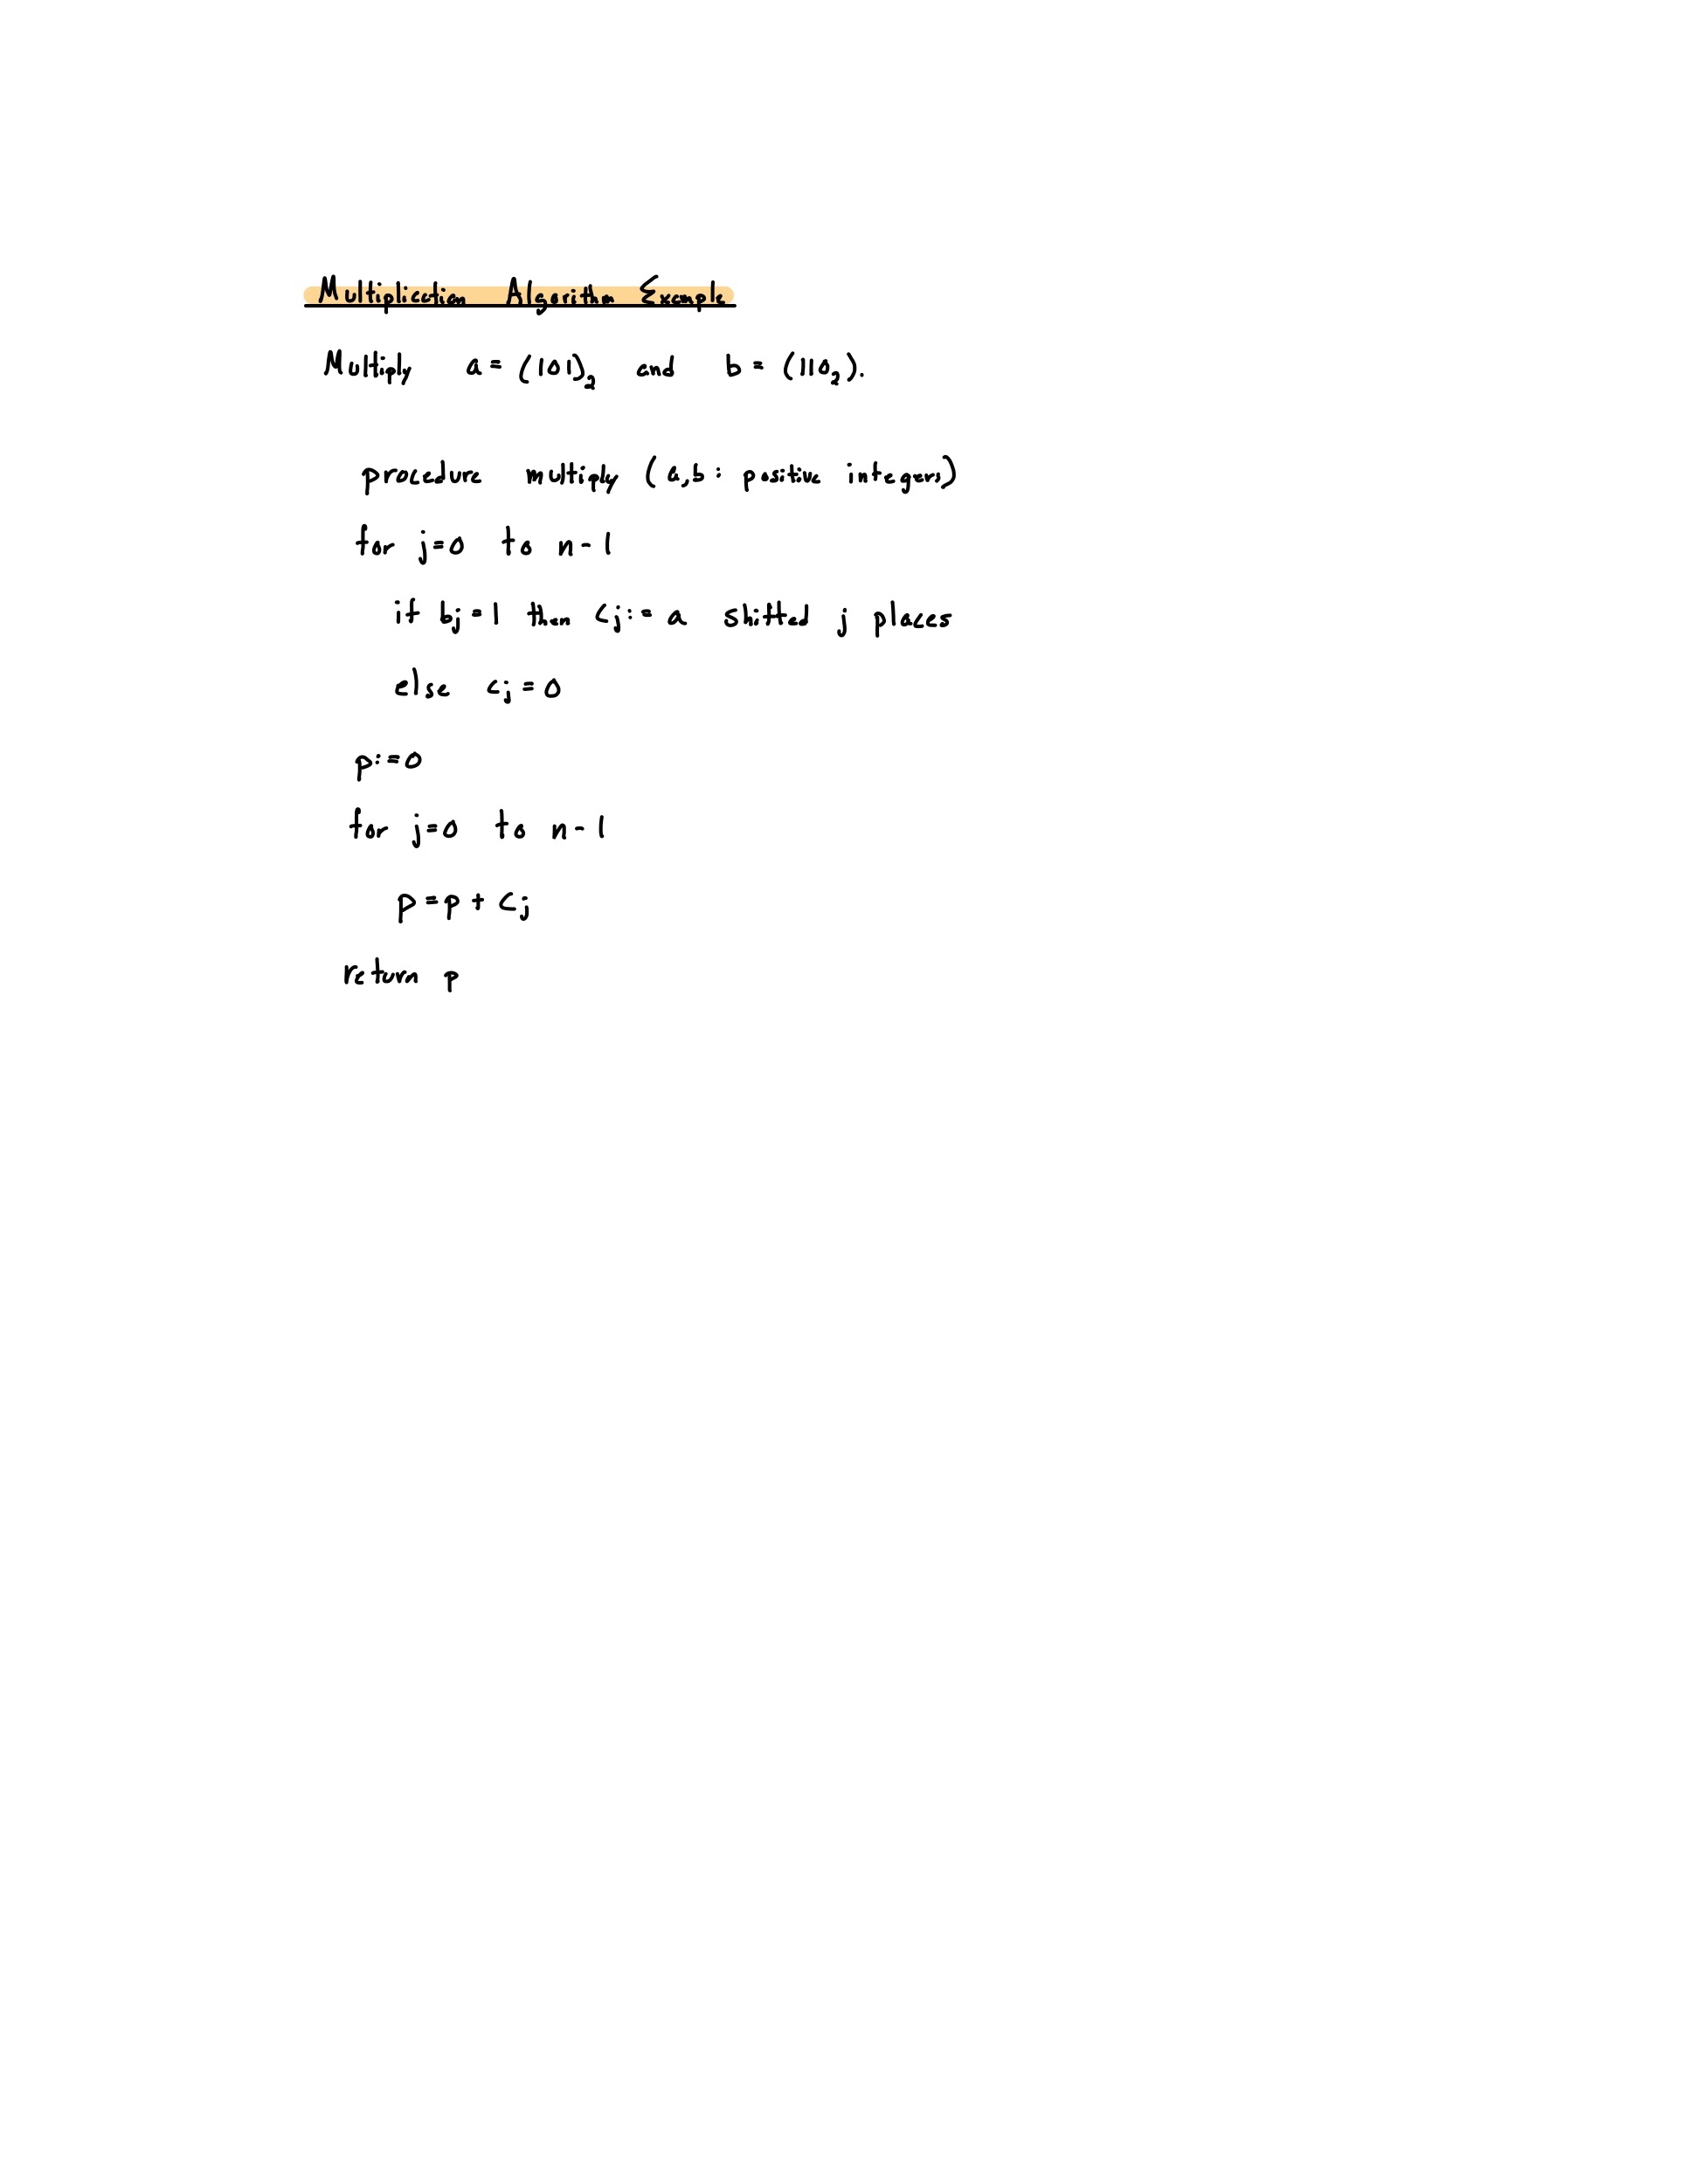 Multiplication Algorithm Example
Multiply a = (101)₂ and b = (110₂).
procedure multiply (a,b: positive integers)
for j=0 to n-1
if bⱼ = 1 then cⱼ := a shifted j places
else cⱼ = 0
p:=0
for j=0 to n-1
p = p + cⱼ
return p